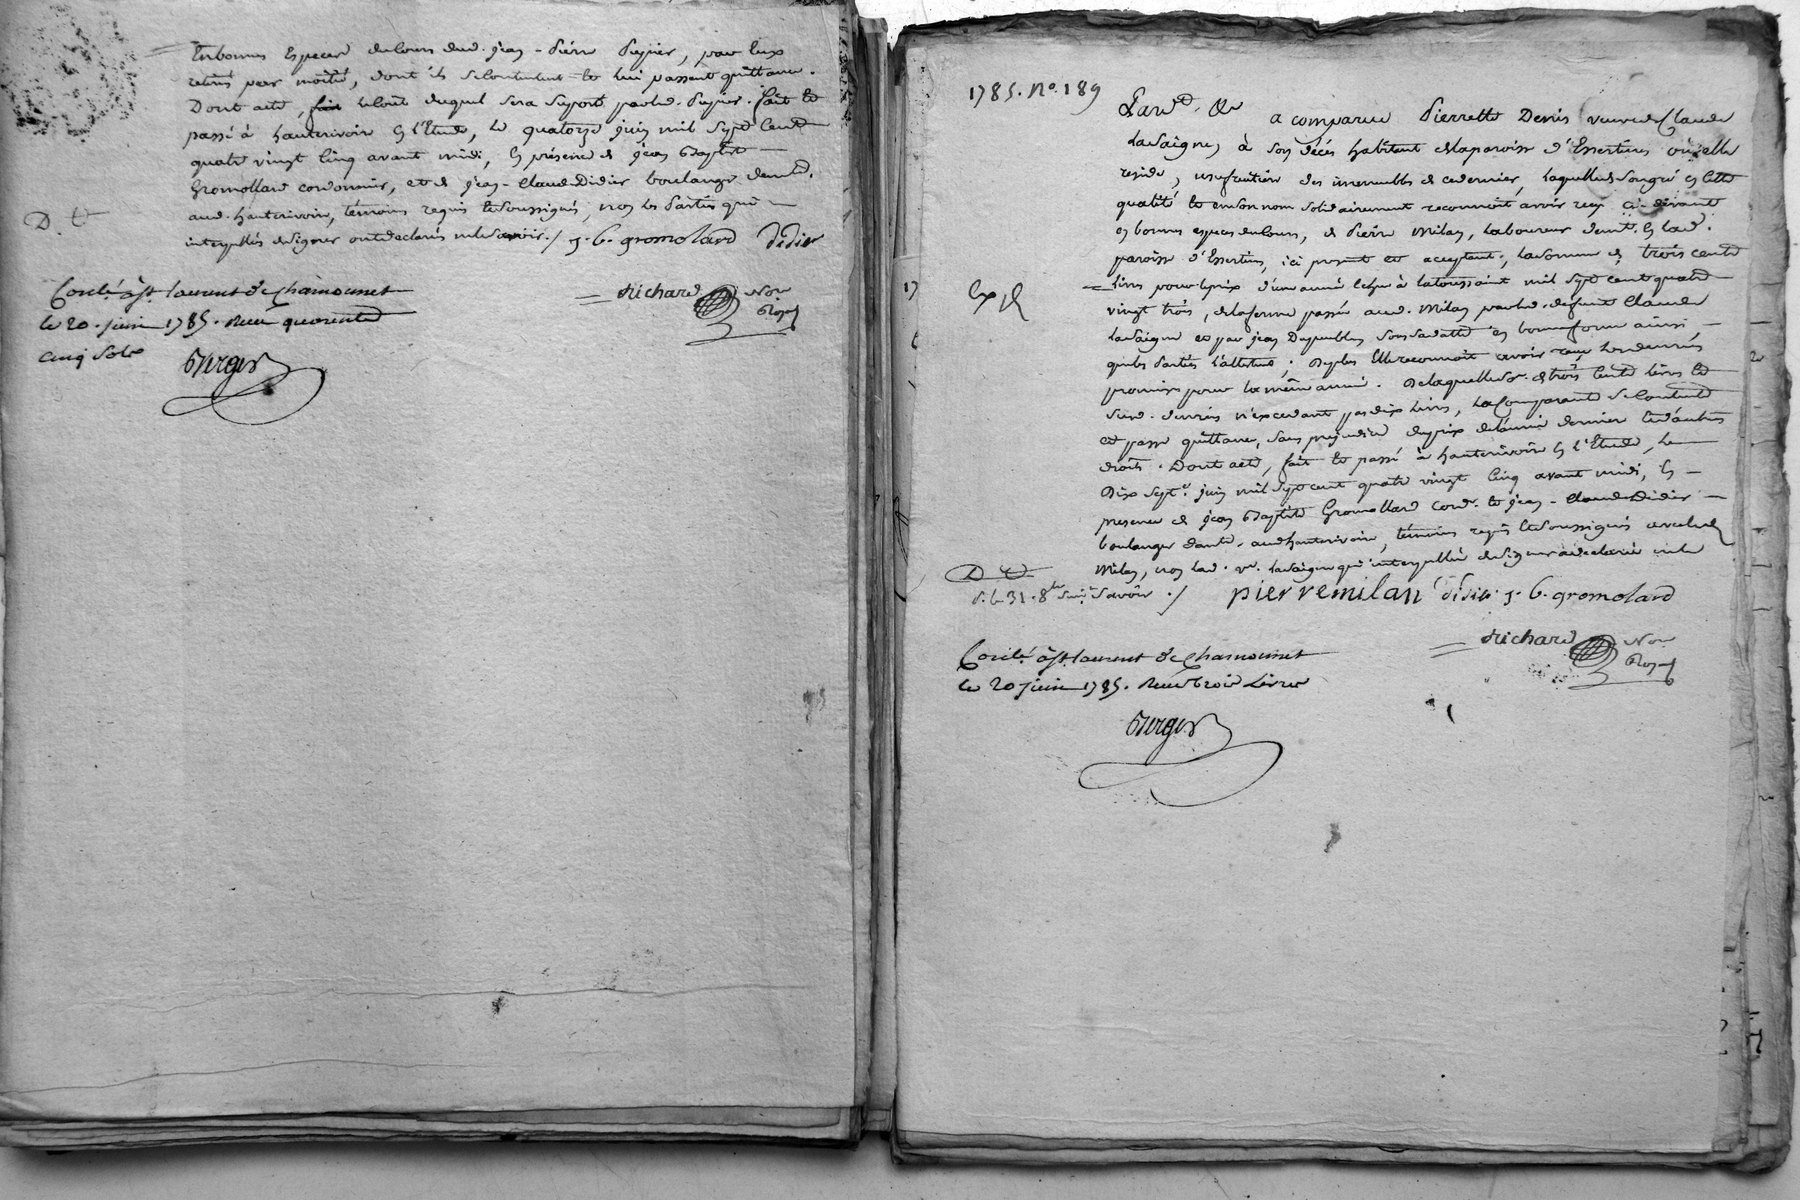 en bonnes especes de cours dud. jean-Pierre Pupier, pour eux
retirés par moitié, dont ils se contentent et lui passent quittance.
Dont acte, le coût duquel sera suporté par led. Pupier. fait et
passé à hauterivoire en l'Etude, le quatorze juin mil sept cent
quatre vingt cinq avant midi, en présence de jean Baptiste
Gromollard cordonnier, et de jean-Claude Didier boulanger demt.
aud. hauterivoire, témoins requis et soussignés, non les parties qui
interpellés de signer ont déclarés ne le savoir ./ j. b. gromolard didier
D. C
Richard Nore Royal
Conlé. à st. laurent de Chamousset
le 20. juin 1785. Recu quarente
cinq sols
Berger
1785. No. 189
Pard. &c a comparue Pierrette Denis veuve de Claude
Lassaigne, à son décés habitant de la paroisse d'Essertines où elle
reside, usufruitiere des immeubles de ce dernier, laquelle de son gré en cette
qualité et en son nom solidairement reconnoit avoir reçu ci-devant
en bonnes especes de cours, de Pierre Milan, laboureur demt. en lad.
paroisse d'Essertines, ici present et acceptant, la somme de trois cent
livres pour le prix d'une année échue à la toussaint mil sept cent quatre
Exp
vingt trois, de la ferme passée aud. Milan par led. defunt Claude
Lassaigne et par jean sous sa datte en bonne forme ainsi
que les parties l'attestent; De plus Elle reconnoit avoir reçu les denrées
promises pour la même année. De laquelle so. de trois cent livres et
desd. denrées n'excedant pas dix livres, la Comparante se contente
et passe quittance, sans prejudice du prix de l'année derniere et d'autres
droits. Dont acte, fait et passé à hauterivoire en l'Etude, le
Dix sept juin mil sept cent quatre vingt cinq avant midi, en
presence de jean Baptiste Gromollard cord. et jean-Claude Didier
boulanger demt. aud. hauterivoire, témoins requis et soussignés avec led.
Milan, non lad. ve. Lassaigne qui interpellée de signer a déclaré ne le
D. C
savoir ./ pierre milan didier j. b. gromolard
Richard Nore Royal
Conlé. à st. laurent de Chamousset
le 20 juin 1785. Recu trois Livres
Berger